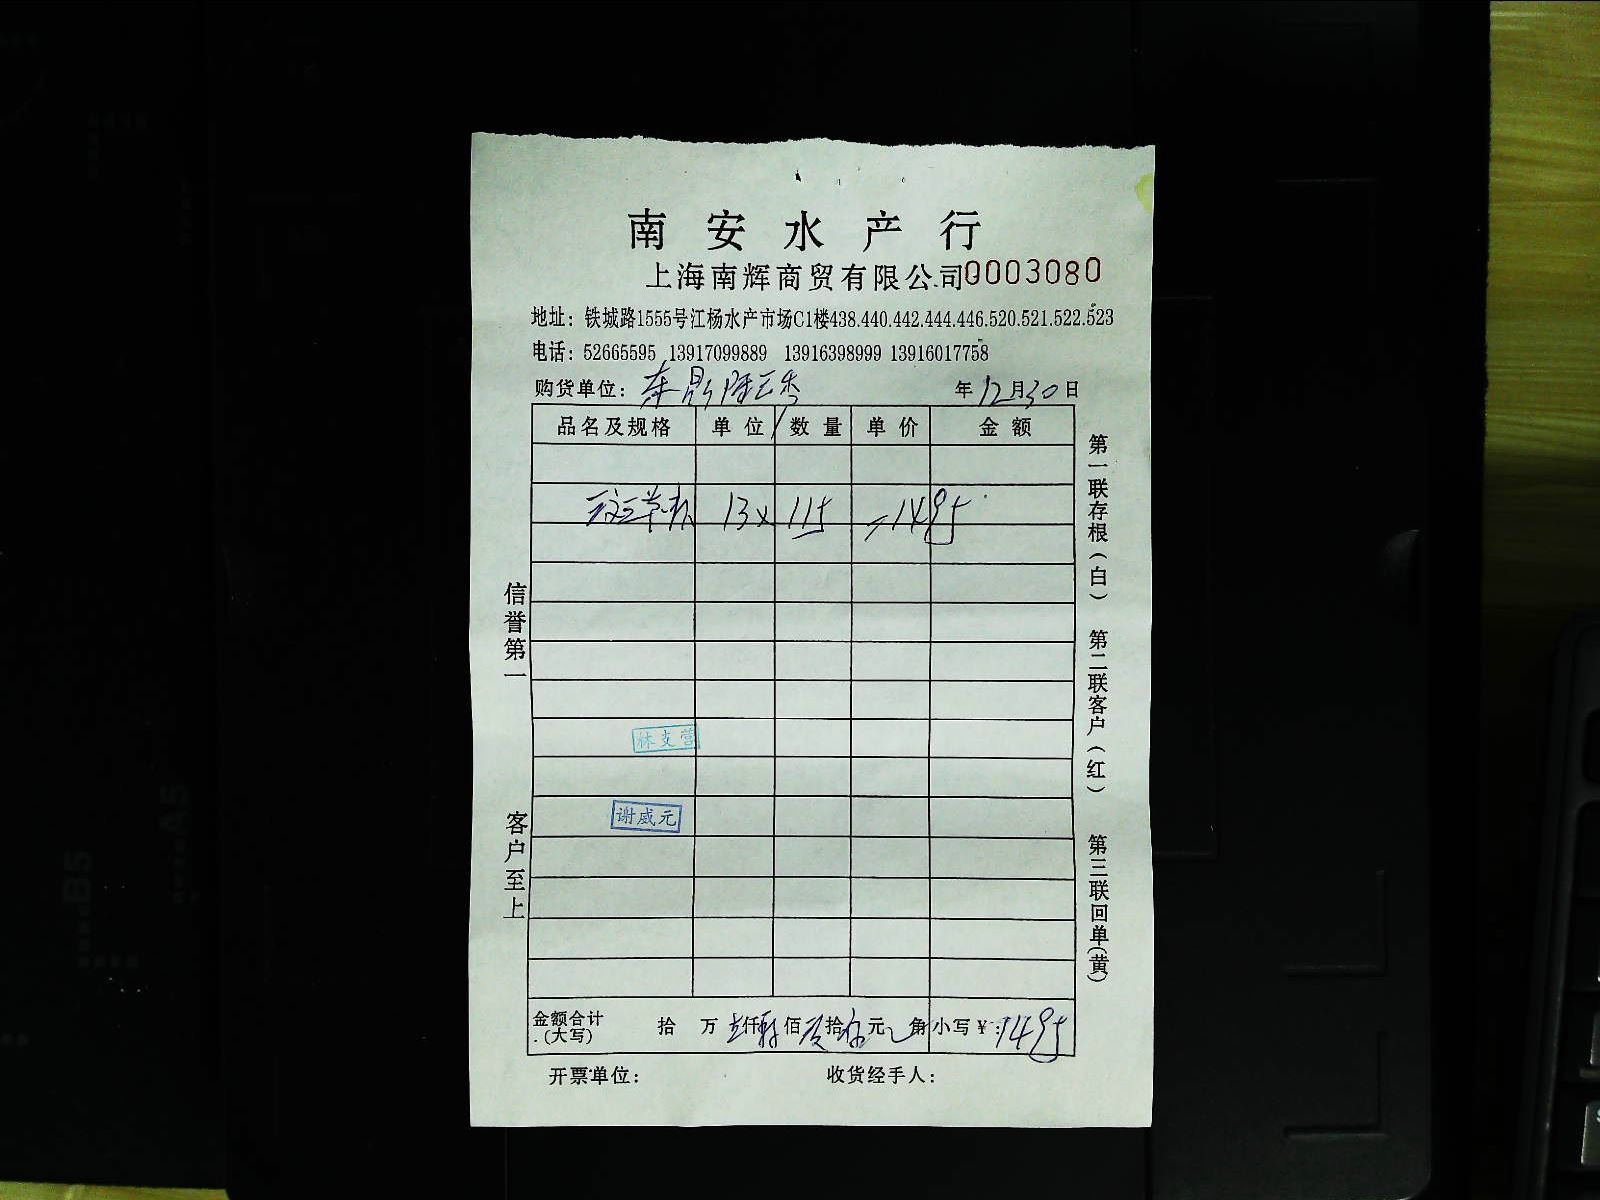 南安水产行
上海南辉商贸有限公司0003080
地址：铁城路1555号江杨水产市场C1楼438.440.442.444.446.520.521.522.523
电话：52665595 13917099889 13916398999 13916017758
购货单位： 年12月30日
品名及规格 单位 数量 单价 金额
13x 115 =1495
林支营
谢威元
金额合计 拾 万 仟 佰 拾 元 角 小写￥：1495
(大写)
开票单位： 收货经手人：
信誉第一
客户至上
第一联存根(白)
第二联客户(红)
第三联回单(黄)